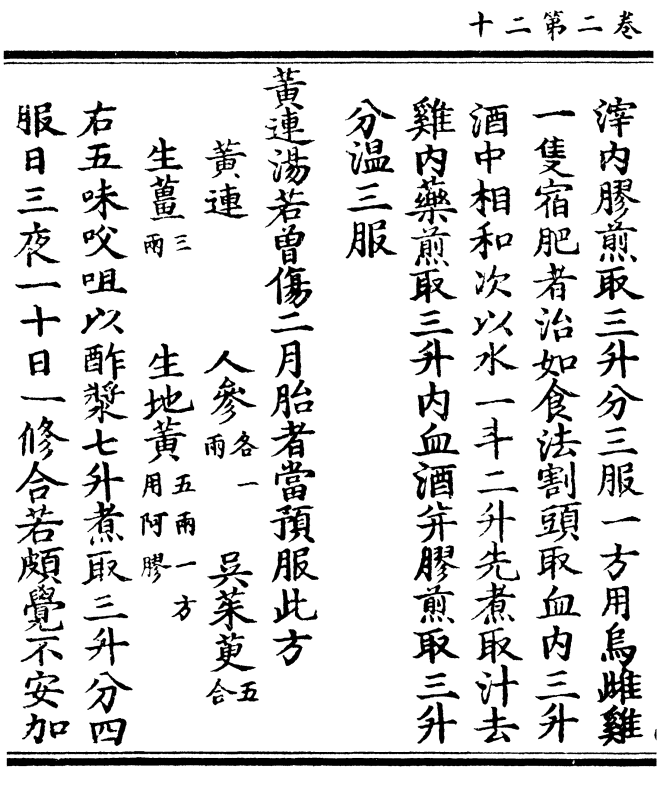 卷二第二十
滓内膠煎取三升分三服一方用烏雌雞
一隻宿肥者治如食法割頭取血内三升
酒中相和次以水一斗二升先煮取汁去
雞内藥煎取三升内血酒并膠煎取三升
分温三服
黃連湯若曾傷二月胎者當預服此方
黃連 人參各一兩 吳茱萸五合
生薑三兩 生地黃五兩一方用阿膠
右五味㕮咀以酢漿七升煮取三升分四
服日三夜一十日一修合若頗覺不安加